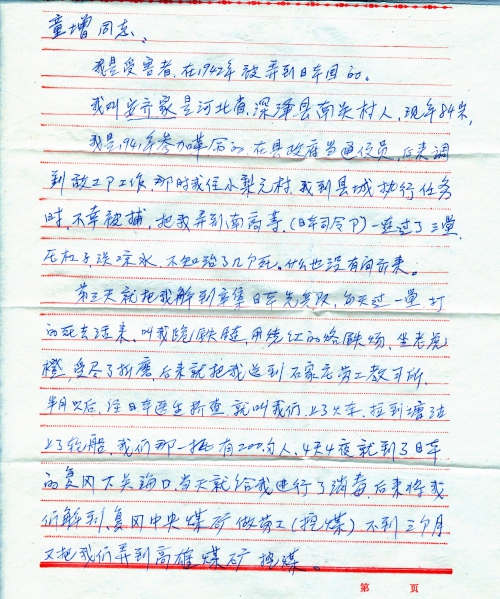 童增同志、
我是受害者，在1942年被弄到日本国的。
我叫安齐家是河北省，深泽县南关村人，现年84岁，
我是1941年参加革命的 在县政府当通信员，后来调
到敌工部工作 那时我住小梨元村 我到县城执行任务
时，不幸被捕，把我弄到南高等，(日本司令部)一连过了三堂，
压杠子，浇凉水，不知治了几个死。什么也没有问出来。
第三天就把我解到辛集日本先遣队，白天过一堂，打
的死去活来，叫我跪铁链，用烧红的烙铁烫，坐老虎
橙，受尽了折磨，后来就把我送到石家庄劳工教习所，
半月以后，经日本医生折查，就叫我们，上了火车，拉到塘沽
上了轮船，我们那一批有200多人，4天4夜就到了日本
的复冈下关海口，当天就给我进行了消毒，后来将我
们解到，复冈中央煤矿做劳工(挖煤)不到三个月
又把我们弄到高雄煤矿挖煤。
第 页